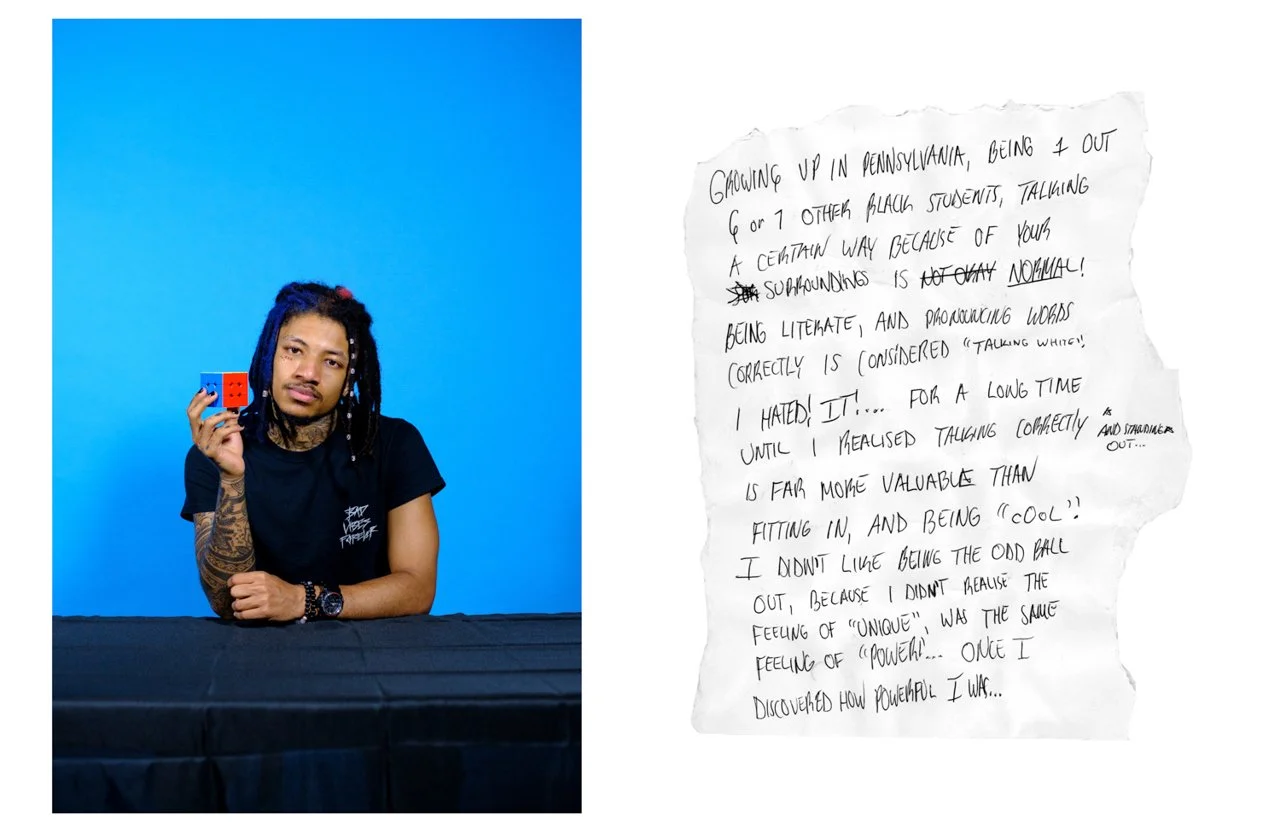 BAD
VIBES
FOREVER
GROWING UP IN PENNSYLVANIA, BEING 1 OUT
6 or 7 OTHER BLACK STUDENTS, TALKING
A CERTAIN WAY BECAUSE OF YOUR
SURROUNDINGS IS NOT OKAY NORMAL!
BEING LITERATE, AND PRONOUNCING WORDS
CORRECTLY IS CONSIDERED "TALKING WHITE"!
I HATED! IT!.... FOR A LONG TIME
UNTIL I REALISED TALKING CORRECTLY AND STANDING
OUT...
IS FAR MORE VALUABLE THAN
FITTING IN, AND BEING "COOL"!
I DIDN'T LIKE BEING THE ODD BALL
OUT, BECAUSE I DIDN'T REALISE THE
FEELING OF "UNIQUE", WAS THE SAME
FEELING OF "POWER!"... ONCE I
DISCOVERED HOW POWERFUL I WAS...